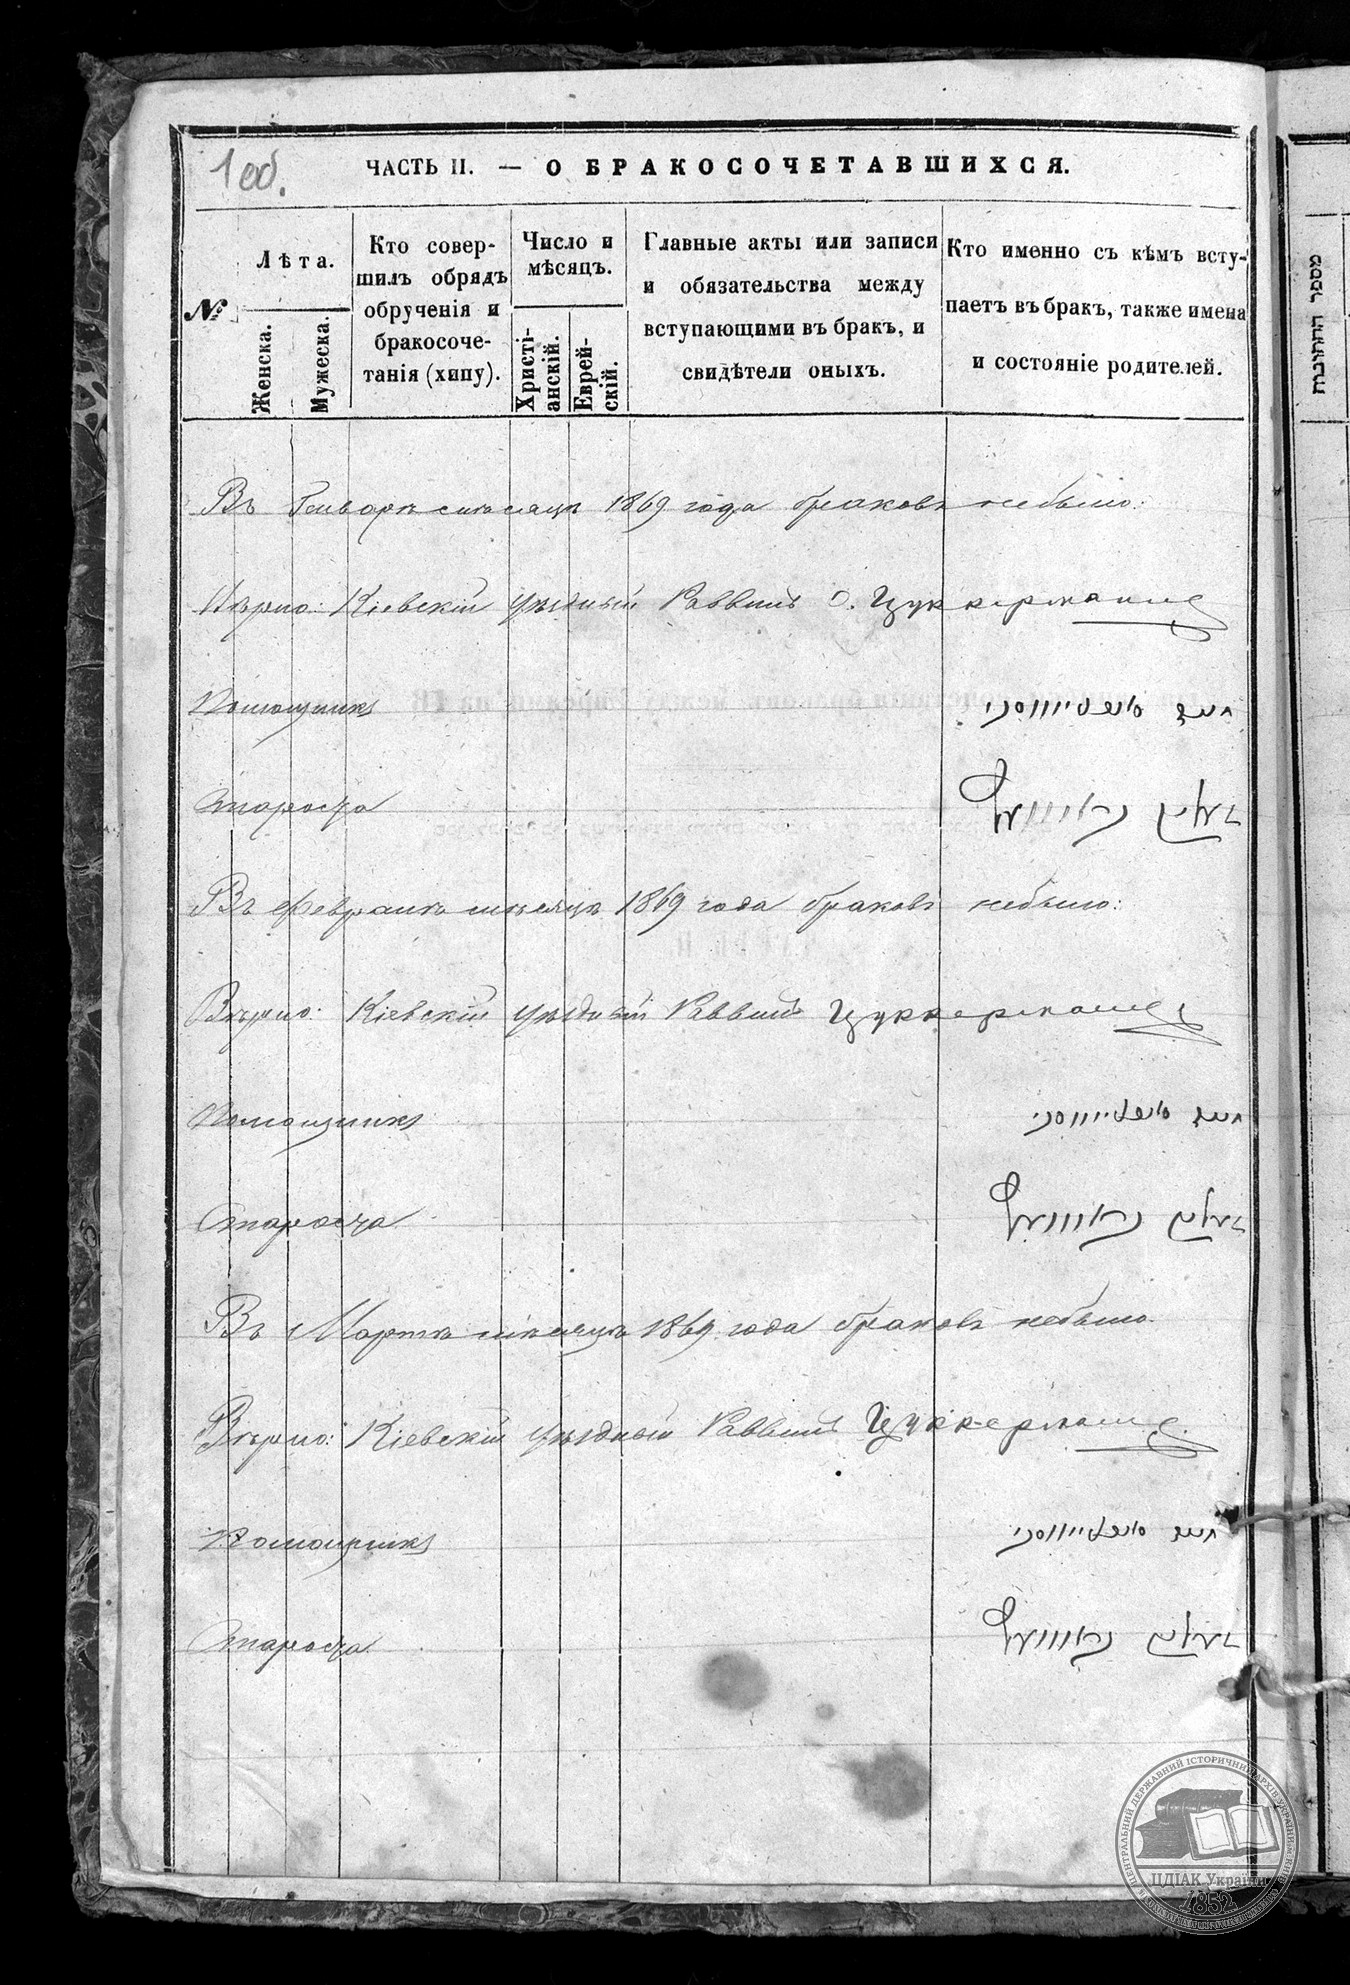 1 об.
ЧАСТЬ II. — О БРАКОСОЧЕТАВШИХСЯ.
№
Лѣта.
Женска.
Мужеска.
Кто совер-
шилъ обрядъ
обрученія и
бракосоче-
танія (хипу).
Число и
мѣсяцъ.
Христі-
анскій.
Еврей-
скій.
Главные акты или записи
и обязательства между
вступающими въ бракъ, и
свидѣтели оныхъ.
Кто именно съ кѣмъ всту-
паетъ въ бракъ, также имена
и состояніе родителей.
מספר החתונות
Въ Январѣ мѣсяцѣ 1869 года браковъ небыло:
Вѣрно: Кіевскій уѣздный Раввинъ О. Цуккерманъ
Помощникъ
Староста
Въ Февралѣ мѣсяцѣ 1869 года браковъ небыло:
Вѣрно: Кіевскій уѣздный Раввинъ Цуккерманъ
Помощникъ
Староста
Въ Мартѣ мѣсяцѣ 1869 года браковъ небыло.
Вѣрно: Кіевскій уѣздный Раввинъ Цуккерманъ
Помощникъ
Староста
ЦЕНТРАЛЬНИЙ ДЕРЖАВНИЙ ІСТОРИЧНИЙ АРХІВ УКРАЇНИ
ЦДІАК України
1852